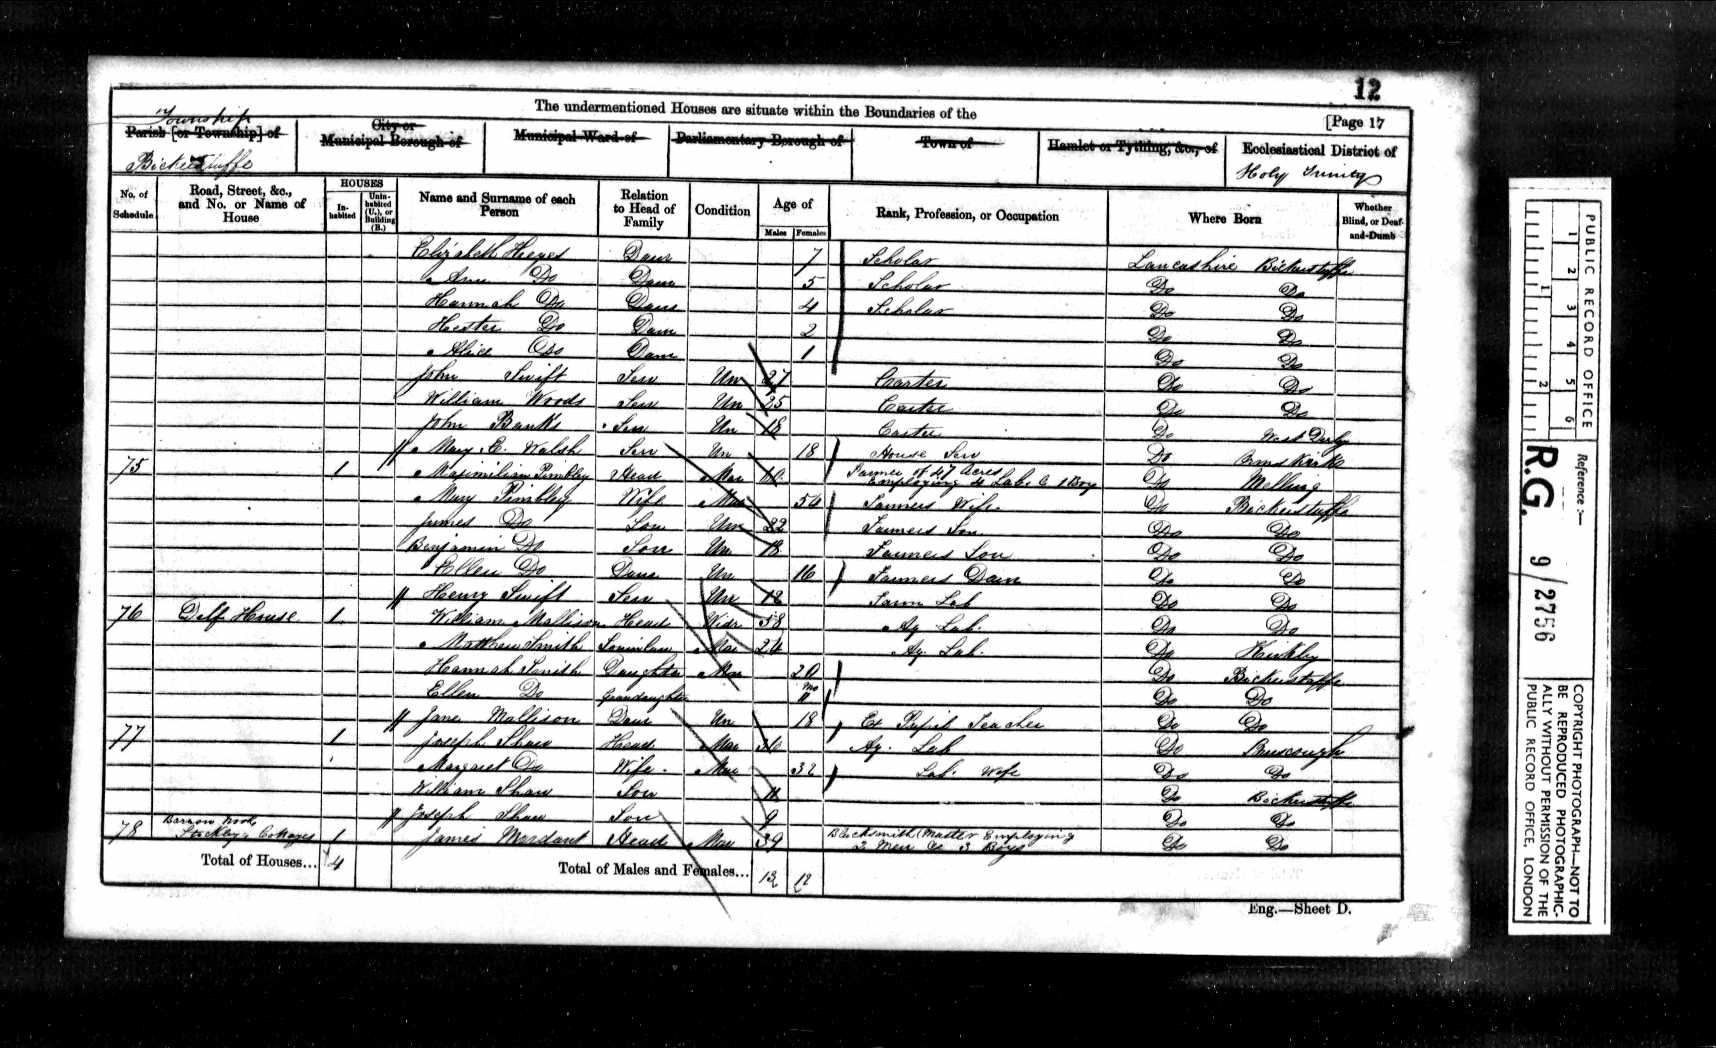 12
The undermentioned Houses are situate within the Boundaries of the
[Page 17
Township
Parish [or Township] of
City or
Municipal Borough of
Municipal Ward of
Parliamentary Borough of
Town of
Hamlet or Tything, &c., of
Ecclesiastical District of
Bickerstaffe
Holy Trinity
No. of Schedule
Road, Street, &c., and No. or Name of House
HOUSES
In-habited
Unin-habited (U.), or Building (B.)
Name and Surname of each Person
Relation to Head of Family
Condition
Age of
Males
Females
Rank, Profession, or Occupation
Where Born
Whether Blind, or Deaf-and-Dumb
Elizabeth Heyes Daur 7 Scholar Lancashire Bickerstaffe
Ann Do Daur 5 Scholar Do Do
Hannah Do Daur 4 Scholar Do Do
Hester Do Daur 2 Do Do
Alice Do Daur 1 Do Do
John Swift Serv Un 27 Carter Do Do
William Woods Serv Un 25 Carter Do Do
John Banks Serv Un 18 Carter Do West Derby
Mary E. Walsh Serv Un 18 House Serv Do Ormskirk
75 1 Maximilian Pimbley Head Mar Farmer of 47 Acres Employing 4 Labs & 1 Boy Do Melling
Mary Pimbley Wife Mar 54 Farmers Wife Do Bickerstaffe
James Do Son Un 22 Farmers Son Do Do
Benjamin Do Son Un 18 Farmers Son Do Do
Ellen Do Daur Un 16 Farmers Daur Do Do
Henry Swift Serv Un 18 Farm Lab Do Do
76 Delf House 1 William Mallison Head Widr 58 Ag. Lab. Do Do
Matthew Smith Soninlaw Mar 24 Ag. Lab. Do Kirkby
Hannah Smith Daughter Mar 20 Do Bickerstaffe
Ellen Do Grandaughter Mo 11 Do Do
Jane Mallison Daur Un 18 Ex Pupil Teacher Do Do
77 1 Joseph Shaw Head Mar Ag. Lab Do Burscough
Margaret Do Wife Mar 32 Lab. Wife Do Do
William Shaw Son 11 Do Bickerstaffe
Joseph Shaw Son 9 Do Do
78 Barrow Nook Stockleys Cottages 1 James Mordant Head Mar 39 Blacksmith (Master Employing 2 Men & 3 Boys Do Do
Total of Houses... 4
Total of Males and Females... 13 12
Eng.—Sheet D.
PUBLIC RECORD OFFICE
1 2 3 4 5 6
1 2
Reference:—
R.G. 9/2756
COPYRIGHT PHOTOGRAPH—NOT TO
BE REPRODUCED PHOTOGRAPHIC-
ALLY WITHOUT PERMISSION OF THE
PUBLIC RECORD OFFICE, LONDON